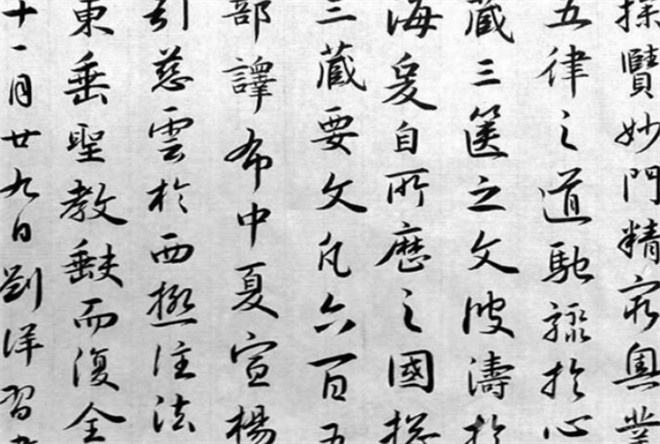 探賾妙門精窮奧業
五律之道馳驟於心
藏三篋之文波濤於
海爰自所歷之國總
三藏要文凡六百五
部譯布中夏宣揚
引慈雲於西極注法
東垂聖教缺而復全
十一月廿九日劉洋習